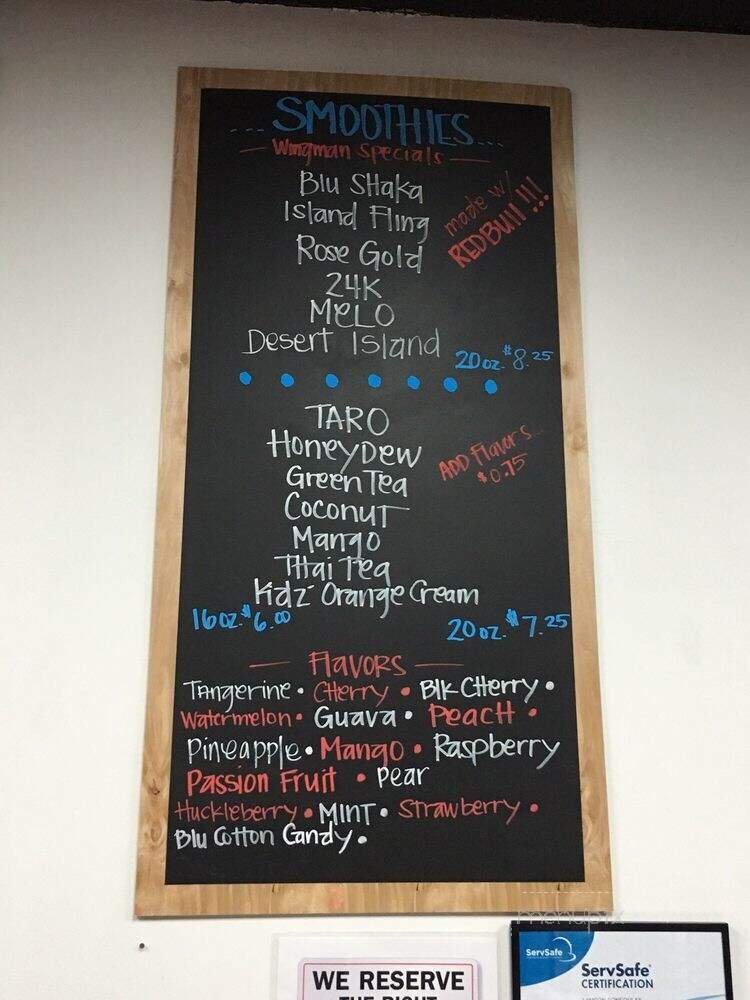 ... SMOOTHIES ...
— Wingman Specials —
Blu SHaka
Island Fling
made w/
REDBull!!!
Rose Gold
24K
MeLO
Desert Island
20oz. $8.25
TARO
HoneyDew
ADD Flavors...
$0.75
Green Tea
Coconut
Mango
THai Tea
Kidz Orange Cream
16oz. $6.00
20oz. $7.25
— Flavors —
Tangerine • CHerry • Blk CHerry •
Watermelon • Guava • Peach •
Pineapple • Mango • Raspberry
Passion Fruit • Pear
Huckleberry • MINT • Strawberry •
Blu Cotton Candy •
menupix
ServSafe
ServSafe
CERTIFICATION
WE RESERVE
THE RIGHT